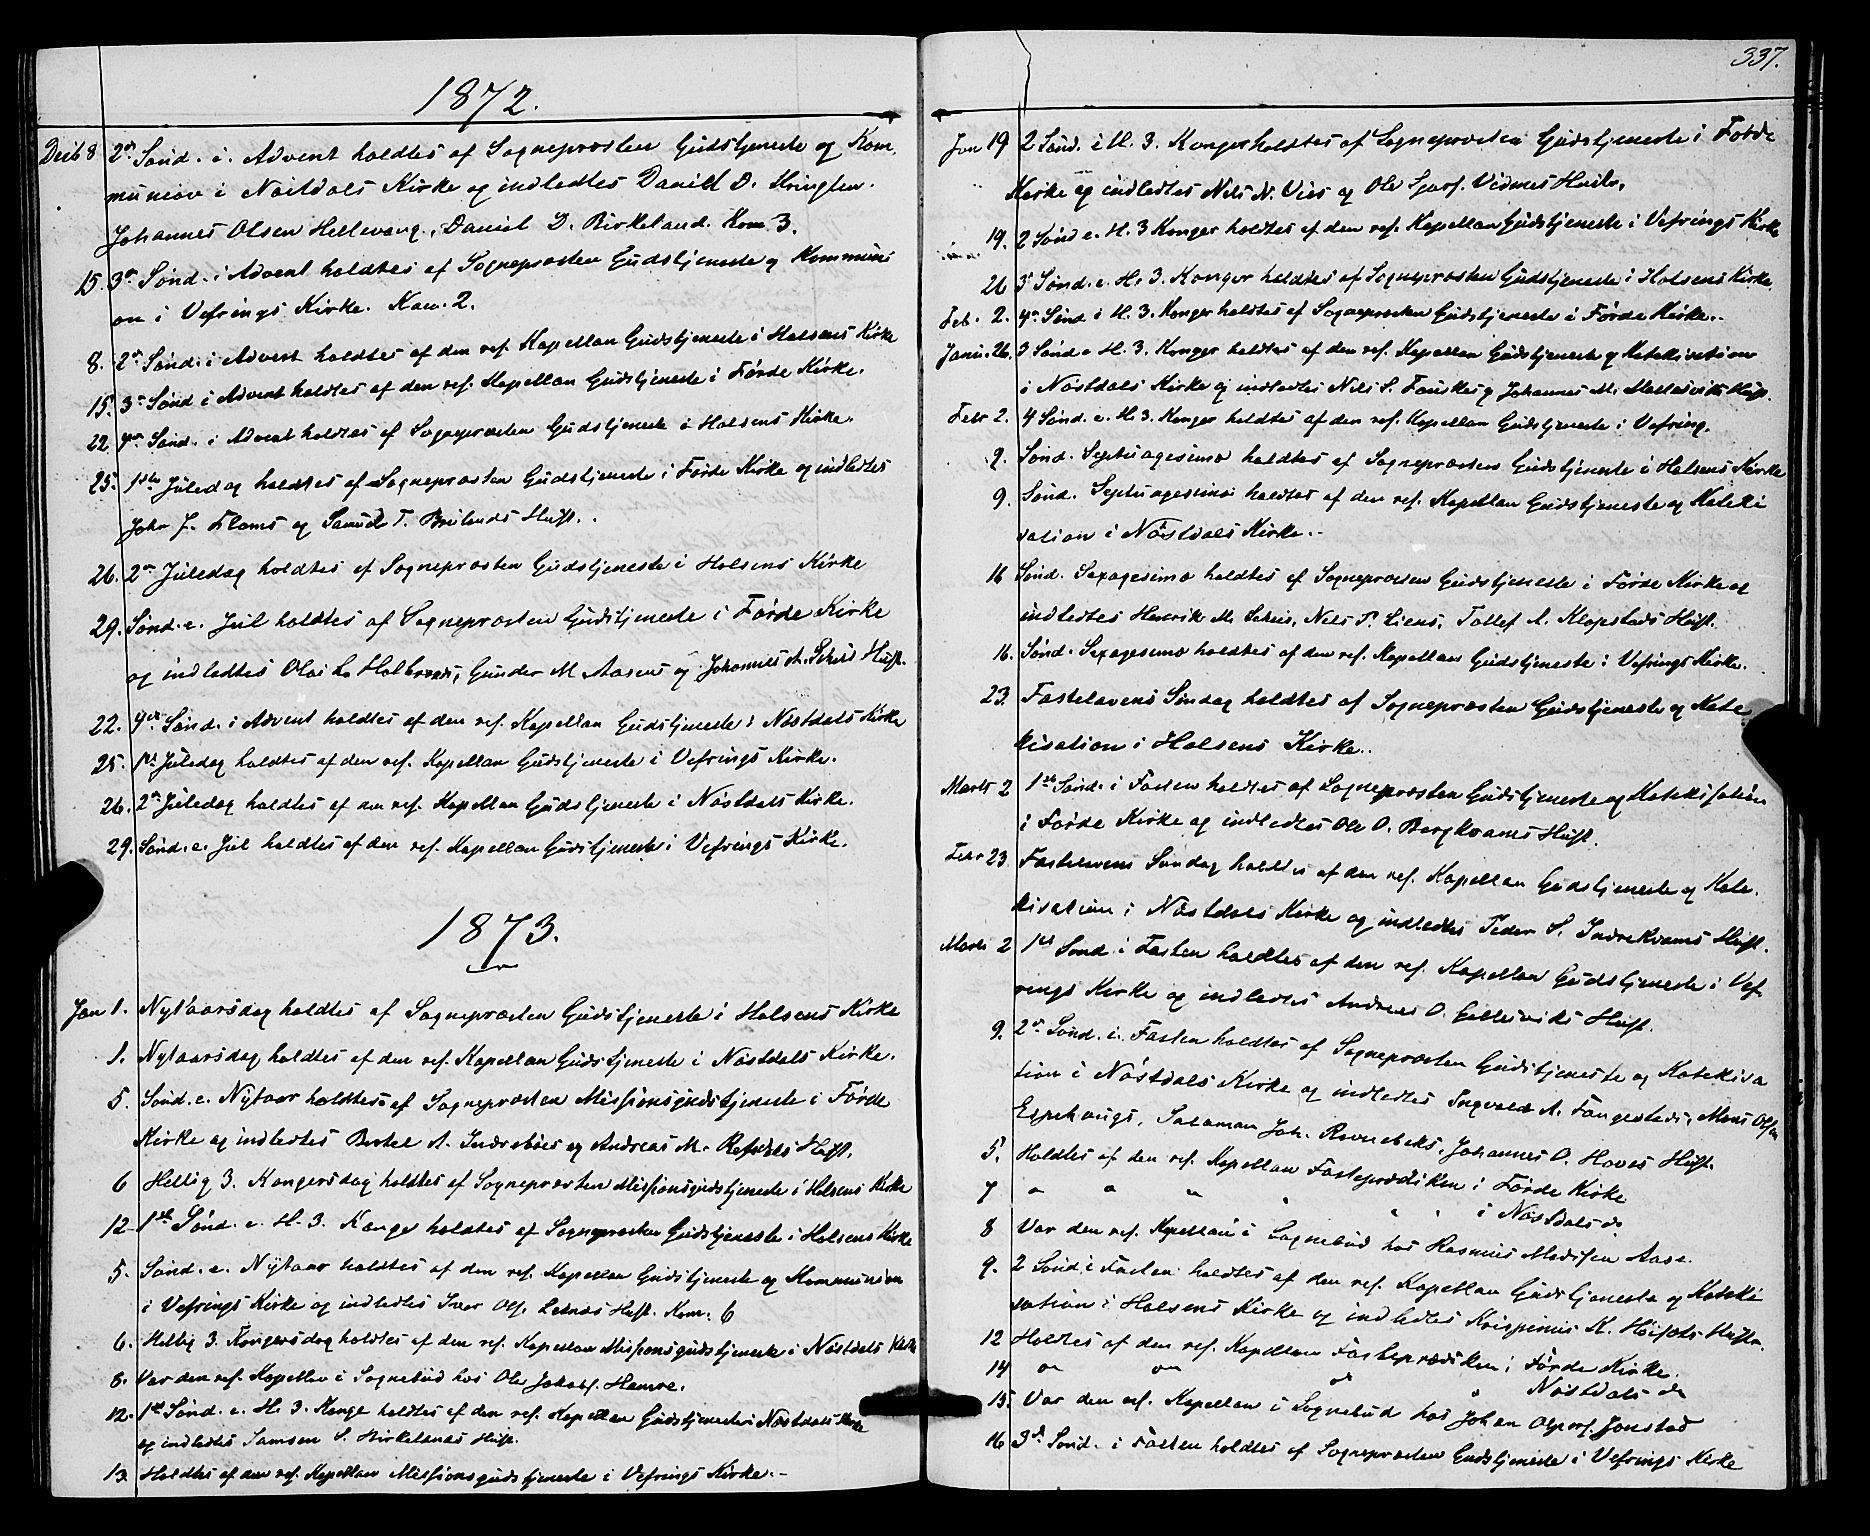 1872.
Decb 8 2den Sönd. i. Advent holdtes af Sognepræsten Gudstjeneste og Kom
munion i Nøstdals Kirke og indledtes Daniel D.
Johannes Olsen Hellevang, Daniel D. Birkeland. Kom. 3.
15. 3de Sönd. i Advent holdtes af Sognepræsten Gudstjeneste og Kommuni
on i Vefrings Kirke. Kom. 2.
8. 2den Sönd. i Advent holdtes af den res. Kapellan Gudstjeneste i Holsens Kirke
15. 3de Sönd i Advent holdtes af den res. Kapellan Gudstjeneste i Förde Kirke.
22 4de Sönd. i Advent holdtes af Sognepræsten Gudstjeneste i Holsens Kirke.
25. 1ste Juledag holdtes af Sognepræsten Gudstjeneste i Förde Kirke og indledtes
John J. Floms og Samuel T. Brulands Hust.
26. 2den Juledag holdtes af Sognepræsten Gudstjeneste i Holsens Kirke
29. Sönd. e. Jul holdtes af Sognepræsten Gudstjeneste i Förde Kirke
og indledtes Olai L. Gunder M. Aasens og Johannes A. Hust.
22. 4de Sönd. i Advent holdtes af den res. Kapellan Gudstjeneste i Nøstdals Kirke
25. 1ste Juledag holdtes af den res. Kapellan Gudstjeneste i Vefrings Kirke.
26. 2den Juledag holdtes af den res. Kapellan Gudstjeneste i Nøstdals Kirke.
29. Sönd. e. Jul holdtes af den res. Kapellan Gudstjeneste i Vefrings Kirke.
1873.
Jan 1. Nytaarsdag holdtes af Sognepræsten Gudstjeneste i Holsens Kirke
1. Nytaarsdag holdtes af den res. Kapellan Gudstjeneste i Nøstdals Kirke.
5. Sönd. e. Nytaar holdtes af Sognepræsten Missionsgudstjeneste i Förde
Kirke og indledtes Botel A. Indrebøes og Andreas M. Refsdals Hust.
6 Hellig 3. Kongersdag holdtes af Sognepræsten Missionsgudstjeneste i Holsens Kirke
12 1ste Sönd. e. H. 3. Konge holdtes af Sognepræsten Gudstjeneste i Holsens Kirke
5. Sönd. e. Nytaar holdtes af den res. Kapellan Gudstjeneste og Kommunion
i Vefrings Kirke og indledtes Iver Ols. Hust. Kom. 6
6. Hellig 3. Kongersdag holdtes af den res. Kapellan Missionsgudstjeneste i Nøstdals Kirke
8. Var den res. Kapellan i Sognebud hos Ole Jakobs. Hamre.
12. 1ste Sönd. e. H. 3. Konge holdtes af den res. Kapellan Gudstjeneste i Nøstdals Kirke
og indledtes Samson S. Birkelands Hust.
13 Holdtes af den res. Kapellan Missionsgudstjeneste i Vefrings Kirke.
337.
Jan 19 2 Sönd. e H. 3. Konger holdtes af Sognepræsten Gudstjeneste i Förde
Kirke og indledtes Nels N. Vies og Ole Sjurs. Vidnes Hustr.
19. 2 Sönd e. H. 3 Konger holdtes af den res. Kapellan Gudstjeneste i Vefrings Kirke
26 3 Sönd. e. H. 3. Konger holdtes af Sognepræsten Gudstjeneste i Holsens Kirke.
Feb. 2. 4de Sönd e H. 3. Konger holdtes af Sognepræsten Gudstjeneste i Förde Kirke.
Janu. 26. 3 Sönd e H. 3. Konger holdtes af den res. Kapellan Gudstjeneste og Katekisation
i Nøstdals Kirke og indledtes Nils S. Fauskes og Johannes M. Hust.
Febr 2. 4 Sönd. e. H. 3. Konger holdtes af den res. Kapellan Gudstjeneste i Vefring.
9. Sönd. Septuagesima holdtes af Sognepræsten Gudstjeneste i Holsens Kirke
9. Sönd. Septuagesima holdtes af den res. Kapellan Gudstjeneste og Kateki
sation i Nøstdals Kirke.
16 Sönd. Sexagesima holdtes af Sognepræsten Gudstjeneste i Förde Kirke og
indledtes Henrik M. Nils P. Liens, Tollef A. Klopstads Hust.
16. Sönd. Sexagesima holdtes af den res. Kapellan Gudstjeneste i Vefrings Kirke.
23. Fastelavens Söndag holdtes af Sognepræsten Gudstjeneste og Kate
kisation i Holsens Kirke.
Marts 2 1ste Sönd. i Fasten holdtes af Sognepræsten Gudstjeneste og Katekisation
i Förde Kirke og indledtes Ole O. Bergkvams Hust.
Febr 23. Fastelavens Söndag holdtes af den res. Kapellan Gudstjeneste og Kate
kisation i Nøstdals Kirke og indledtes Peder S. Indrekvams Hust.
Marts 2 1ste Sönd. i Fasten holdtes af den res. Kapellan Gudstjeneste i Vef
rings Kirke og indledtes Andreas O. Gellesviks Hust.
9. 2den Sönd. i. Fasten holdtes af Sognepræsten Gudstjeneste og Katekisa
tion i Nøstdals Kirke og indledtes Ingvald A. Mons Olsen
Espehaugs, Salamon Joh. Johannes O. Hoves Hust.
5. Holdtes af den res. Kapellan Fasteprædiken i Förde Kirke
7 " " " " " " i Nøstdals do
8 Var den res. Kapellan i Sognebud hos Rasmus Madssen Aase.
9. 2 Sönd. i Fasten holdtes af den res. Kapellan Gudstjeneste og Kateki
sation i Holsens Kirke og indledtes Krispinus K. Hustr.
12 Holdtes af den res. Kapellan Fasteprædiken i Förde Kirke.
14 " " " " Nøstdals do
15. Var den res. Kapellan i Sognebud hos Johan Jonstad
16 3die Sönd. i Fasten holdtes af Sognepræsten Gudstjeneste i Vefrings Kirke